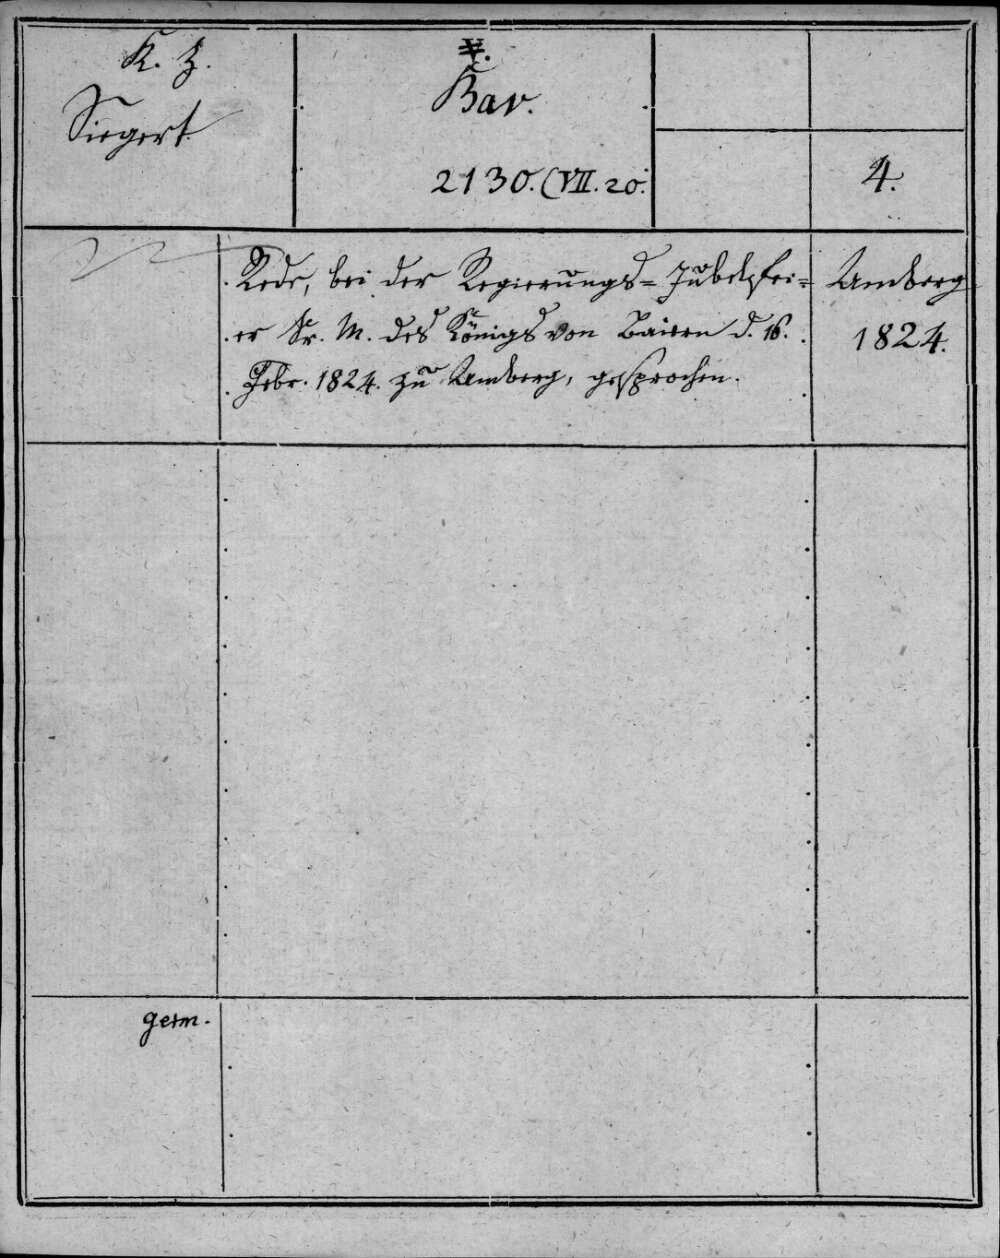 K. Z.
Siegert
V.
Bav.
2130. (VII. 20.
4.
Rede, bei der Regierungs-Jubelfei-
er Sr. M. des Königs von Baiern d. 16.
Febr. 1824. zu Amberg, gesprochen.
Amberg
1824.
germ.